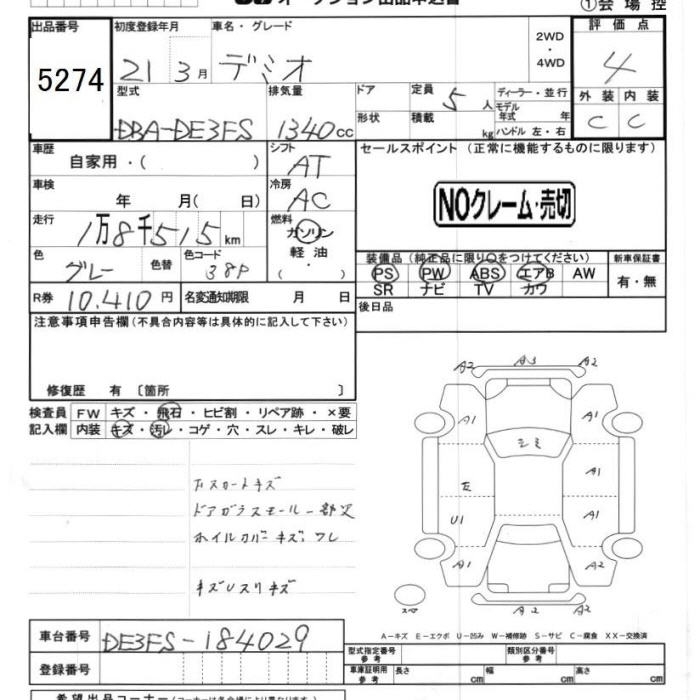 オークション出品申込書 ①会場控
出品番号 初度登録年月 車名・グレード 2WD・4WD 評価点
5274 21 3月 デミオ 4
型式 排気量 ドア 定員 5人 ディーラー・並行 外装 内装
DBA-DE3FS 1340cc 形状 積載 kg モデル年式 年 ハンドル 左・右 C C
車歴 自家用・( ) シフト AT セールスポイント(正常に機能するものに限ります)
車検 年 月( 日) 冷房 AC
NOクレーム・売切
走行 1万8千515km 燃料 ガソリン 軽油 ( ・ )
色 グレー 色替 色コード 38P
装備品(純正品に限り○をつけてください) 新車保証書
PS PW ABS エアB AW 有・無
SR ナビ TV カワ
R券 10,410円 名変通知期限 月 日 後日品
注意事項申告欄(不具合内容等は具体的に記入して下さい)
修復歴 有 〔箇所 〕
検査員 FW キズ・飛石・ヒビ割・リペア跡・×要
記入欄 内装 キズ・汚レ・コゲ・穴・スレ・キレ・破レ
A2 A3 A2
A1 A1
シミ
A1
U1 A1
A1 A2
スペ A2 A2
キズ
ドアガラスモール一部欠
ホイルカバーキズ、ワレ
キズUスリキズ
A-キズ E-エクボ U-凹み W-補修跡 S-サビ C-腐食 XX-交換済
車台番号 DE3FS-184029
型式指定番号 参考 類別区分番号 参考
登録番号 車庫証明用 参考 長さ cm 幅 cm 高さ cm
希望出品コーナー(コーナーは各会場により異なります)